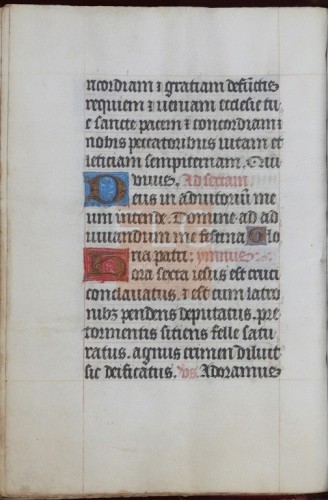 ricordiam ⁊ gratiam defūctis
requiem ⁊ ueniam ecclesie tu
e sancte pacem ⁊ concordiam ⁊
nobis peccatoribus uitam et
leticiam sempiternam. Qui
viuis. Ad sextam
Deus in adiutoriū me
um intende. Domine ad ad
iuuandum me festina Glo
ria patri. ymnus
Hora sexta iesus est cruci
conclauatus. ⁊ est cum latro
nibꝫ pendens deputatus. pre
tormentis sitiens felle satu
ratus. agnus crimen diluit
sic deificatus. vs. Adoramus